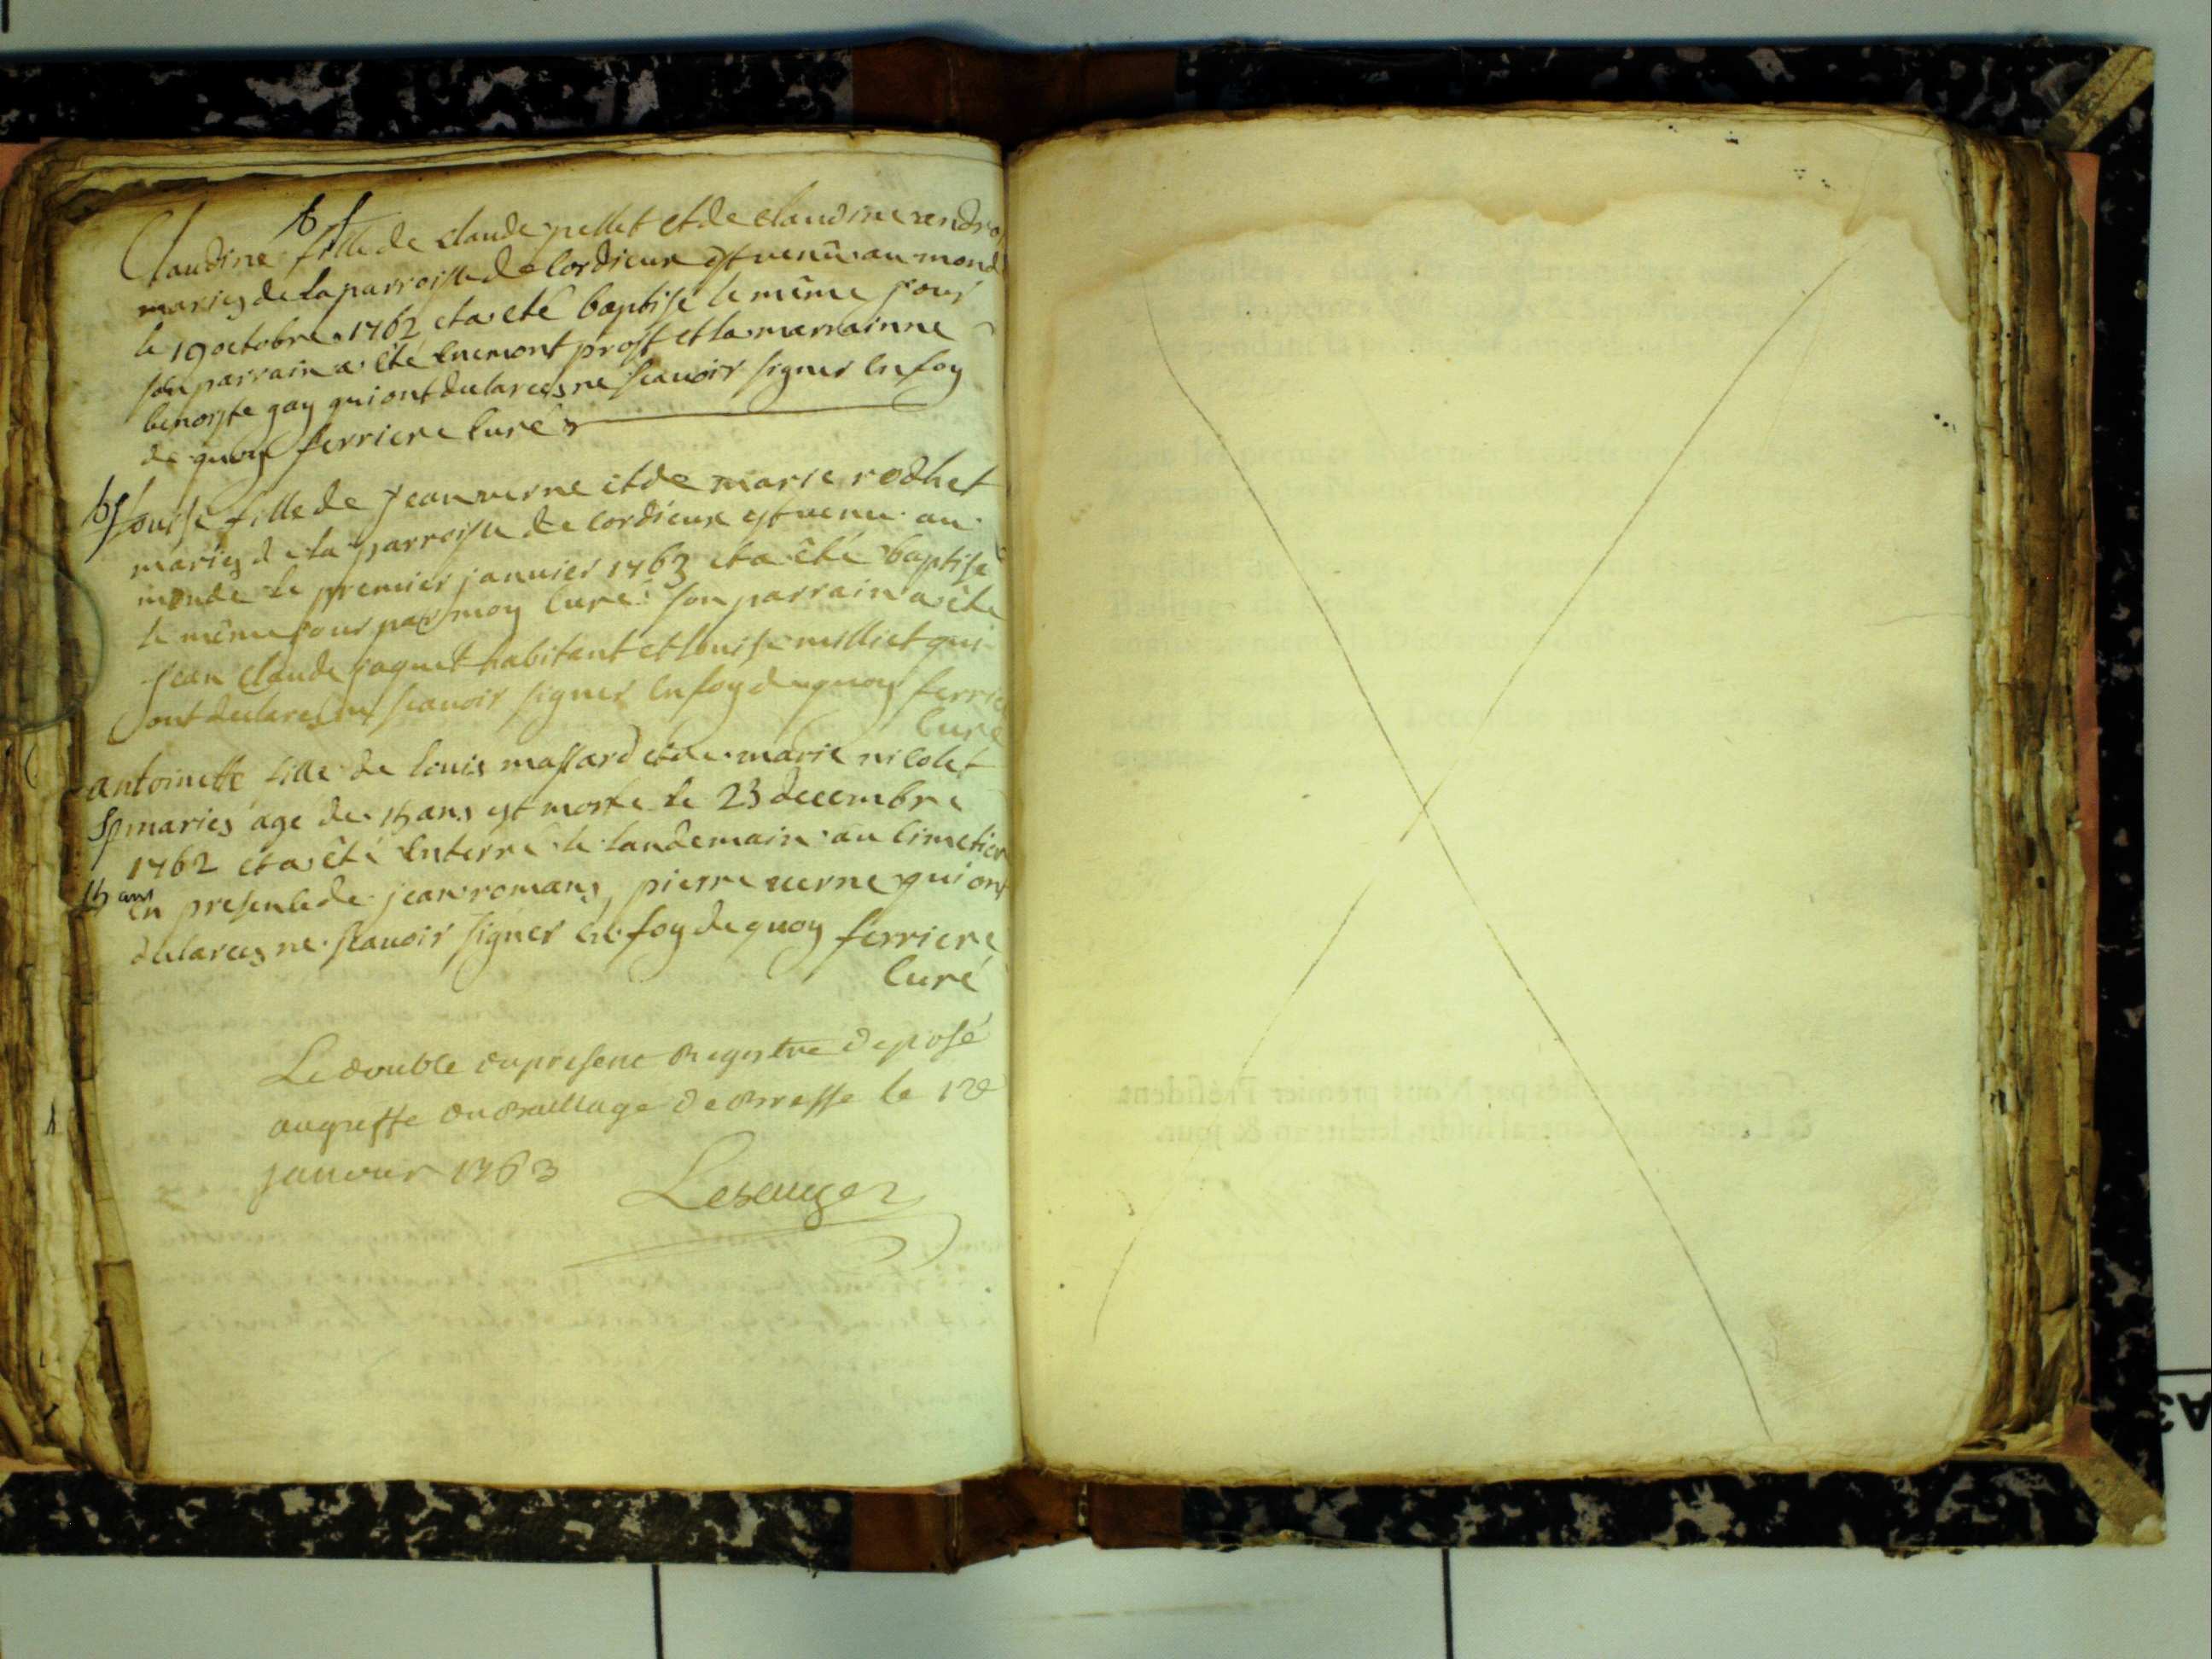 bf
Claudine fille de claude pellet et de claudine
mariez de la parroisse de Cordieux est venû au mond
le 19 octobre 1762 et a eté baptisé le même jour
son parrain a été Enemont prost et la marrainne
benoiste gay qui ont declarees ne scauoir signer En foy
de quoy ferriere Curé
bf Louise fille de Jean verne et de marie rodhet
mariez de la parroisse de Cordieux est venu au
monde le premier januier 1763 et a êté baptisé
le même jour par moy Curé son parrain a êté
Jean Claude jaquet habitant et Louise milliet qui
ont declarees ne scauoir signer En foy de quoy ferrie
Curé
antoinette fille de louis massard et de marie nicolet
Sp mariés age de 15 ans est morte le 23 decembre
1762 et a êté Enterré le landemain au Cimetier
15 ans
En presence de jean romans, pierre verne qui ont
declarees ne scauoir signer En foy de quoy ferriere
Curé
Le double du present Registre deposé
au greffe du Bailliage de Bresse le
januier 1763
A3